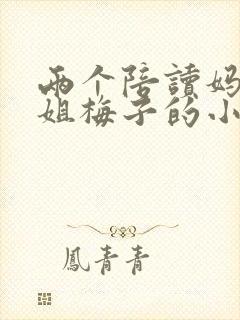 两个陪讀妈
姐梅子的小
鳳青青